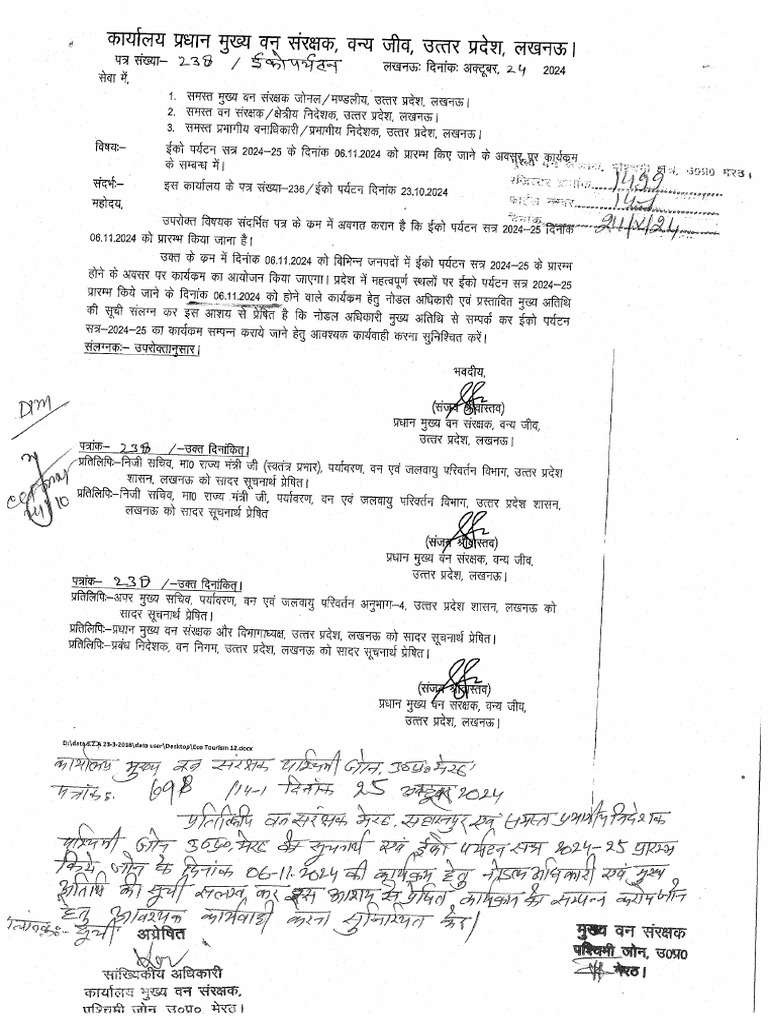 कार्यालय प्रधान मुख्य वन संरक्षक, वन्य जीव, उत्तर प्रदेश, लखनऊ।
पत्र संख्या- 238 / ईकोपर्यटन लखनऊः दिनांकः अक्टूबर, 24 2024
सेवा में,
1. समस्त मुख्य वन संरक्षक जोनल/मण्डलीय, उत्तर प्रदेश, लखनऊ।
2. समस्त वन संरक्षक/क्षेत्रीय निदेशक, उत्तर प्रदेश, लखनऊ।
3. समस्त प्रभागीय वनाधिकारी/प्रभागीय निदेशक, उत्तर प्रदेश, लखनऊ।
विषयः- ईको पर्यटन सत्र 2024-25 के दिनांक 06.11.2024 को प्रारम्भ किए जाने के अवसर पर कार्यक्रम
के सम्बन्ध में।
उ०प्र० मेरठ।
रजिस्टर क्रमांक 1499
फाईल नम्बर 14-1
दिनांक 24/X/24
संदर्भः- इस कार्यालय के पत्र संख्या-236/ईको पर्यटन दिनांक 23.10.2024
महोदय,
उपरोक्त विषयक संदर्भित पत्र के कम में अवगत करान है कि ईको पर्यटन सत्र 2024-25 दिनांक
06.11.2024 को प्रारम्भ किया जाना है।
उक्त के क्रम में दिनांक 06.11.2024 को विभिन्न जनपदों में ईको पर्यटन सत्र 2024-25 के प्रारम्भ
होने के अवसर पर कार्यकम का आयोजन किया जाएगा। प्रदेश में महत्वपूर्ण स्थलों पर ईको पर्यटन सत्र 2024-25
प्रारम्भ किये जाने के दिनांक 06.11.2024 को होने वाले कार्यकम हेतु नोडल अधिकारी एवं प्रस्तावित मुख्य अतिथि
की सूची संलग्न कर इस आशय से प्रेषित है कि नोडल अधिकारी मुख्य अतिथि से सम्पर्क कर ईको पर्यटन
सत्र-2024-25 का कार्यकम सम्पन्न कराये जाने हेतु आवश्यक कार्यवाही करना सुनिश्चित करें।
संलग्नकः- उपरोक्तानुसार।
भवदीय,
(संजय श्रीवास्तव)
प्रधान मुख्य वन संरक्षक, वन्य जीव,
उत्तर प्रदेश, लखनऊ।
पत्रांक- 238 /-उक्त दिनांकित्।
प्रतिलिपिः-निजी सचिव, मा0 राज्य मंत्री जी (स्वतंत्र प्रभार), पर्यावरण, वन एवं जलवायु परिवर्तन विभाग, उत्तर प्रदेश
शासन, लखनऊ को सादर सूचनार्थ प्रेषित।
प्रतिलिपिः-निजी सचिव, मा0 राज्य मंत्री जी, पर्यावरण, वन एवं जलवायु परिवर्तन विभाग, उत्तर प्रदेश शासन,
लखनऊ को सादर सूचनार्थ प्रेषित
(संजय श्रीवास्तव)
प्रधान मुख्य वन संरक्षक, वन्य जीव,
उत्तर प्रदेश, लखनऊ।
पत्रांक- 238 /-उक्त दिनांकित्।
प्रतिलिपिः-अपर मुख्य सचिव, पर्यावरण, वन एवं जलवायु परिवर्तन अनुभाग-4, उत्तर प्रदेश शासन, लखनऊ को
सादर सूचनार्थ प्रेषित।
प्रतिलिपिः-प्रधान मुख्य वन संरक्षक और विभागाध्यक्ष, उत्तर प्रदेश, लखनऊ को सादर सूचनार्थ प्रेषित।
प्रतिलिपिः-प्रबंध निदेशक, वन निगम, उत्तर प्रदेश, लखनऊ को सादर सूचनार्थ प्रेषित।
(संजय श्रीवास्तव)
प्रधान मुख्य वन संरक्षक, वन्य जीव,
उत्तर प्रदेश, लखनऊ।
D:\data S.Z.A 23-3-2018\data user\Desktop\Eco Tourism 12.docx
कार्यालय मुख्य वन संरक्षक पश्चिमी जोन, उ०प्र० मेरठ।
पत्रांकः 698 /14-1 दिनांक 25 अक्टूबर 2024
प्रतिलिपि वन संरक्षक मेरठ, सहारनपुर एवं समस्त प्रभागीय निदेशक
पश्चिमी जोन उ०प्र०, मेरठ को सूचनार्थ एवं ईको पर्यटन सत्र 2024-25 प्रारम्भ
किये जाने के दिनांक 06-11-2024 की कार्यक्रम हेतु नोडल अधिकारी एवं मुख्य
अतिथि की सूची संलग्न कर इस आशय से प्रेषित कार्यक्रम को सम्पन्न कराये जाने
हेतु आवश्यक कार्यवाही करना सुनिश्चित करें।
संलग्नकः- सूची
अग्रेषित
सांख्यिकीय अधिकारी
कार्यालय मुख्य वन संरक्षक,
पश्चिमी जोन उ०प्र० मेरठ।
मुख्य वन संरक्षक
पश्चिमी जोन, उ०प्र०
मेरठ।